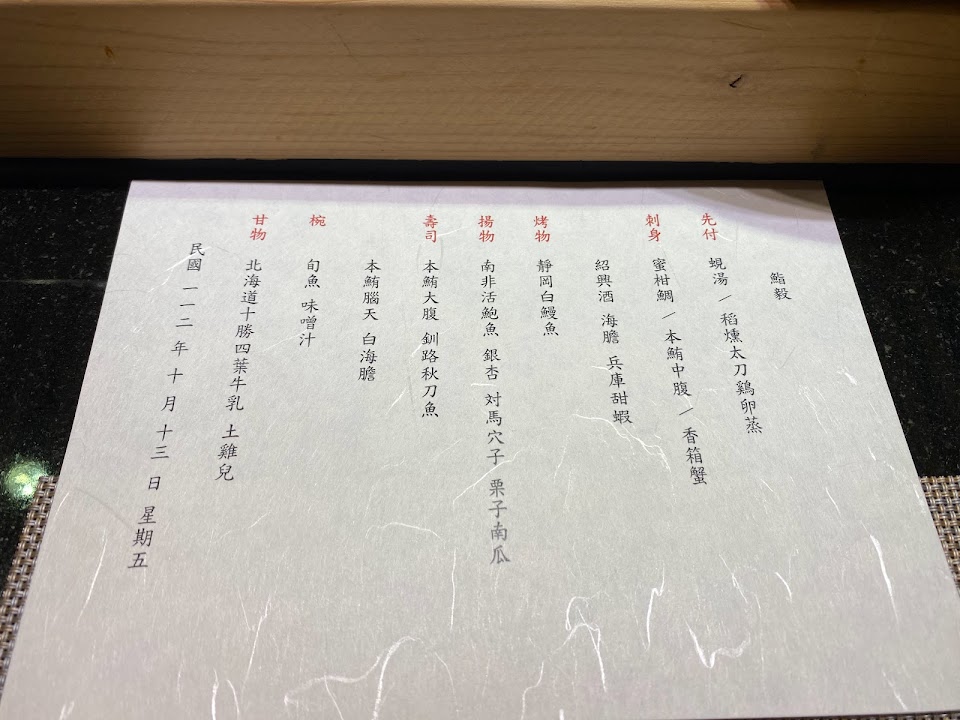 鮨毅
先付 蜆湯 / 稻燻太刀鷄卵蒸
刺身 蜜柑鯛 / 本鮪中腹 / 香箱蟹
紹興酒 海膽 兵庫甜蝦
烤物 靜岡白鰻魚
揚物 南非活鮑魚 銀杏 対馬穴子 栗子南瓜
壽司 本鮪大腹 釧路秋刀魚
本鮪腦天 白海膽
椀 旬魚 味噌汁
甘物 北海道十勝四葉牛乳 土雞兒
民國 一一二 年 十 月 十三 日 星期五